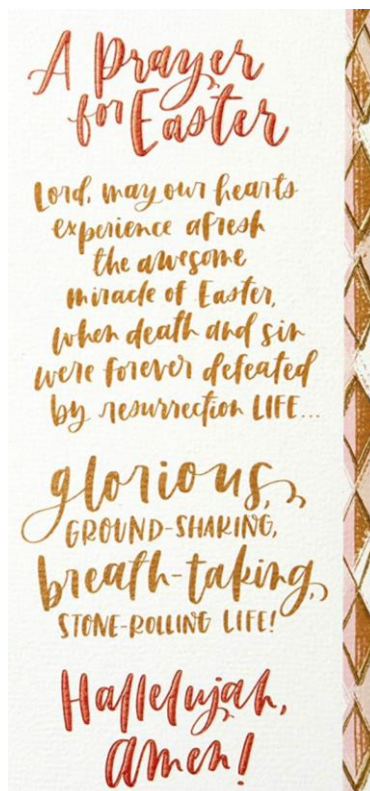 A Prayer
for Easter
Lord, may our hearts
experience afresh
the awesome
miracle of Easter,
when death and sin
were forever defeated
by resurrection LIFE...
glorious,
GROUND-SHAKING,
breath-taking,
STONE-ROLLING LIFE!
Hallelujah,
Amen!